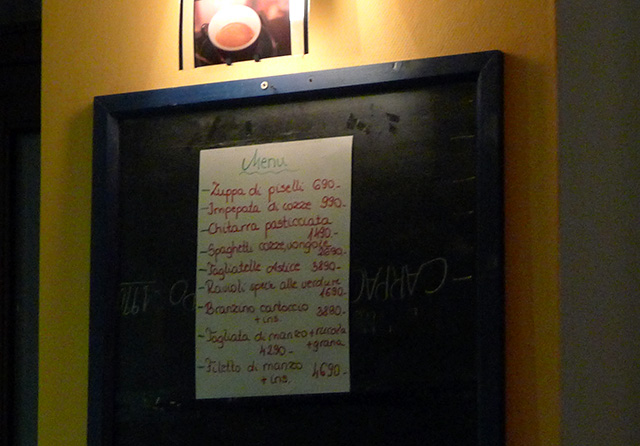 Menu
- Zuppa di piselli 690.-
- Impepata di cozze 990.-
- Chitarra pasticciata
1490.-
- Spaghetti cozze, vongole
- Tagliatelle Astice 3890.-
- Ravioli speck alle verdure
1690.-
- Branzino cartoccio 3890.-
+ ins.
- Tagliata di manzo + rucola
4290.- + grana
- Filetto di manzo 4690.-
+ ins.
CARPAC